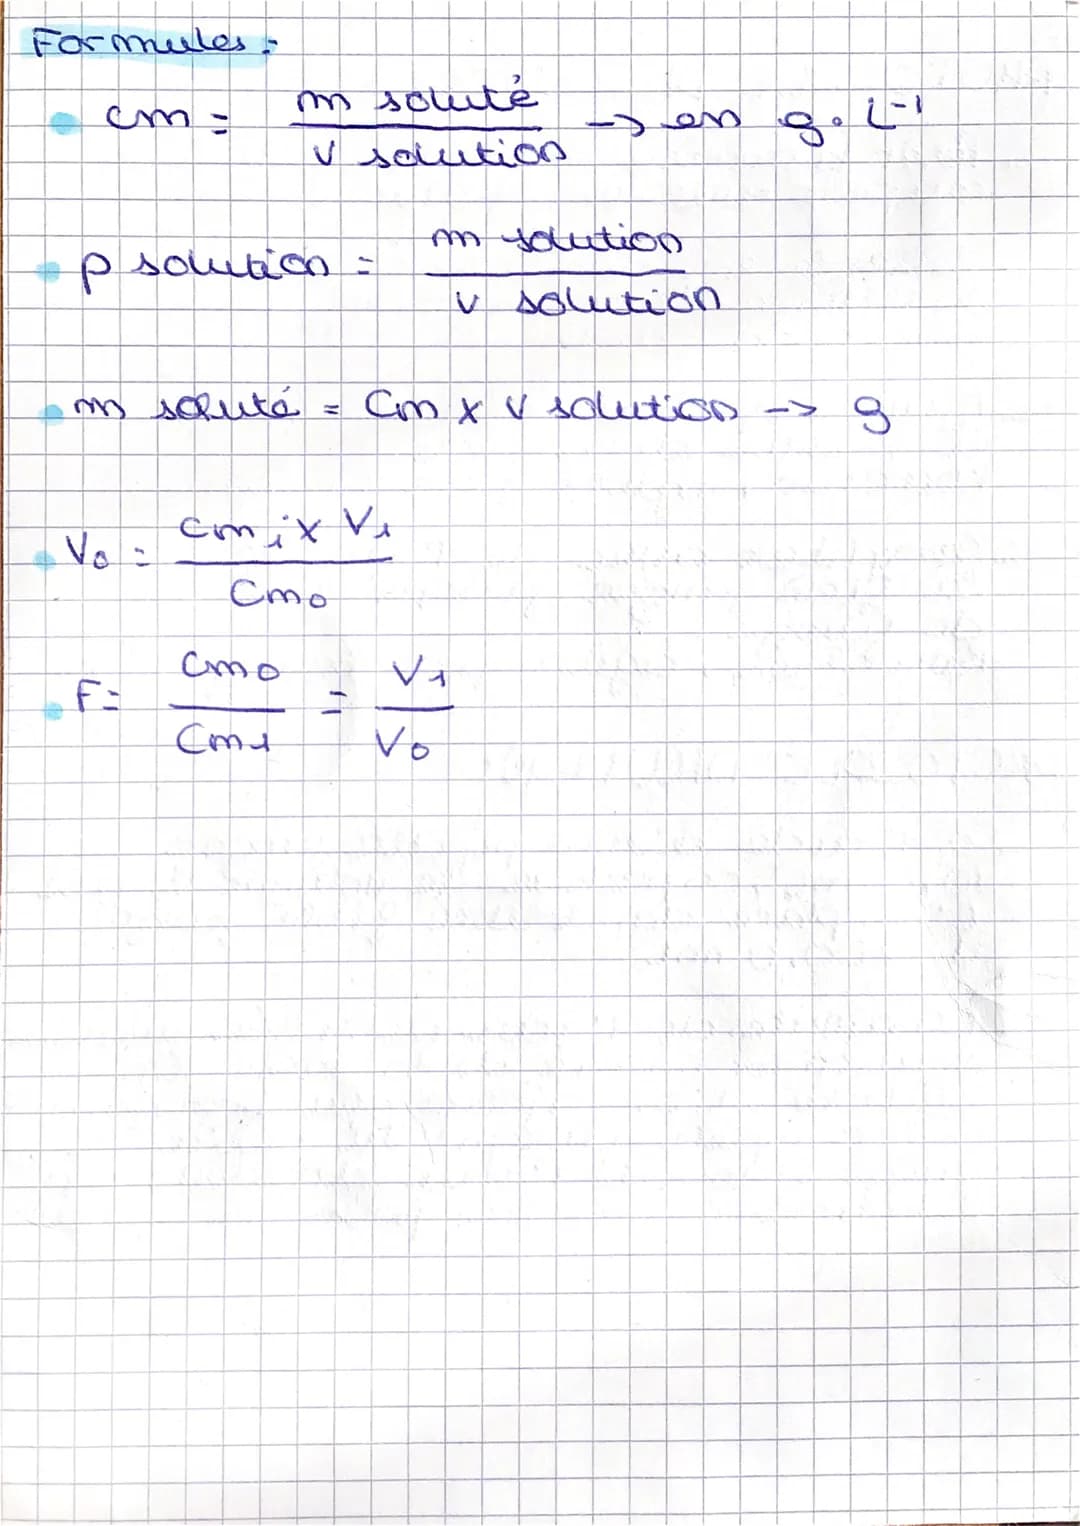 Formules :
cm = m soluté / v solution -> en g. L-1
p solution = m solution / v solution
m soluté = Cm x v solution -> g
V0 = Cm1 x V1 / Cm0
F = Cm0 / Cm1 = V1 / V0